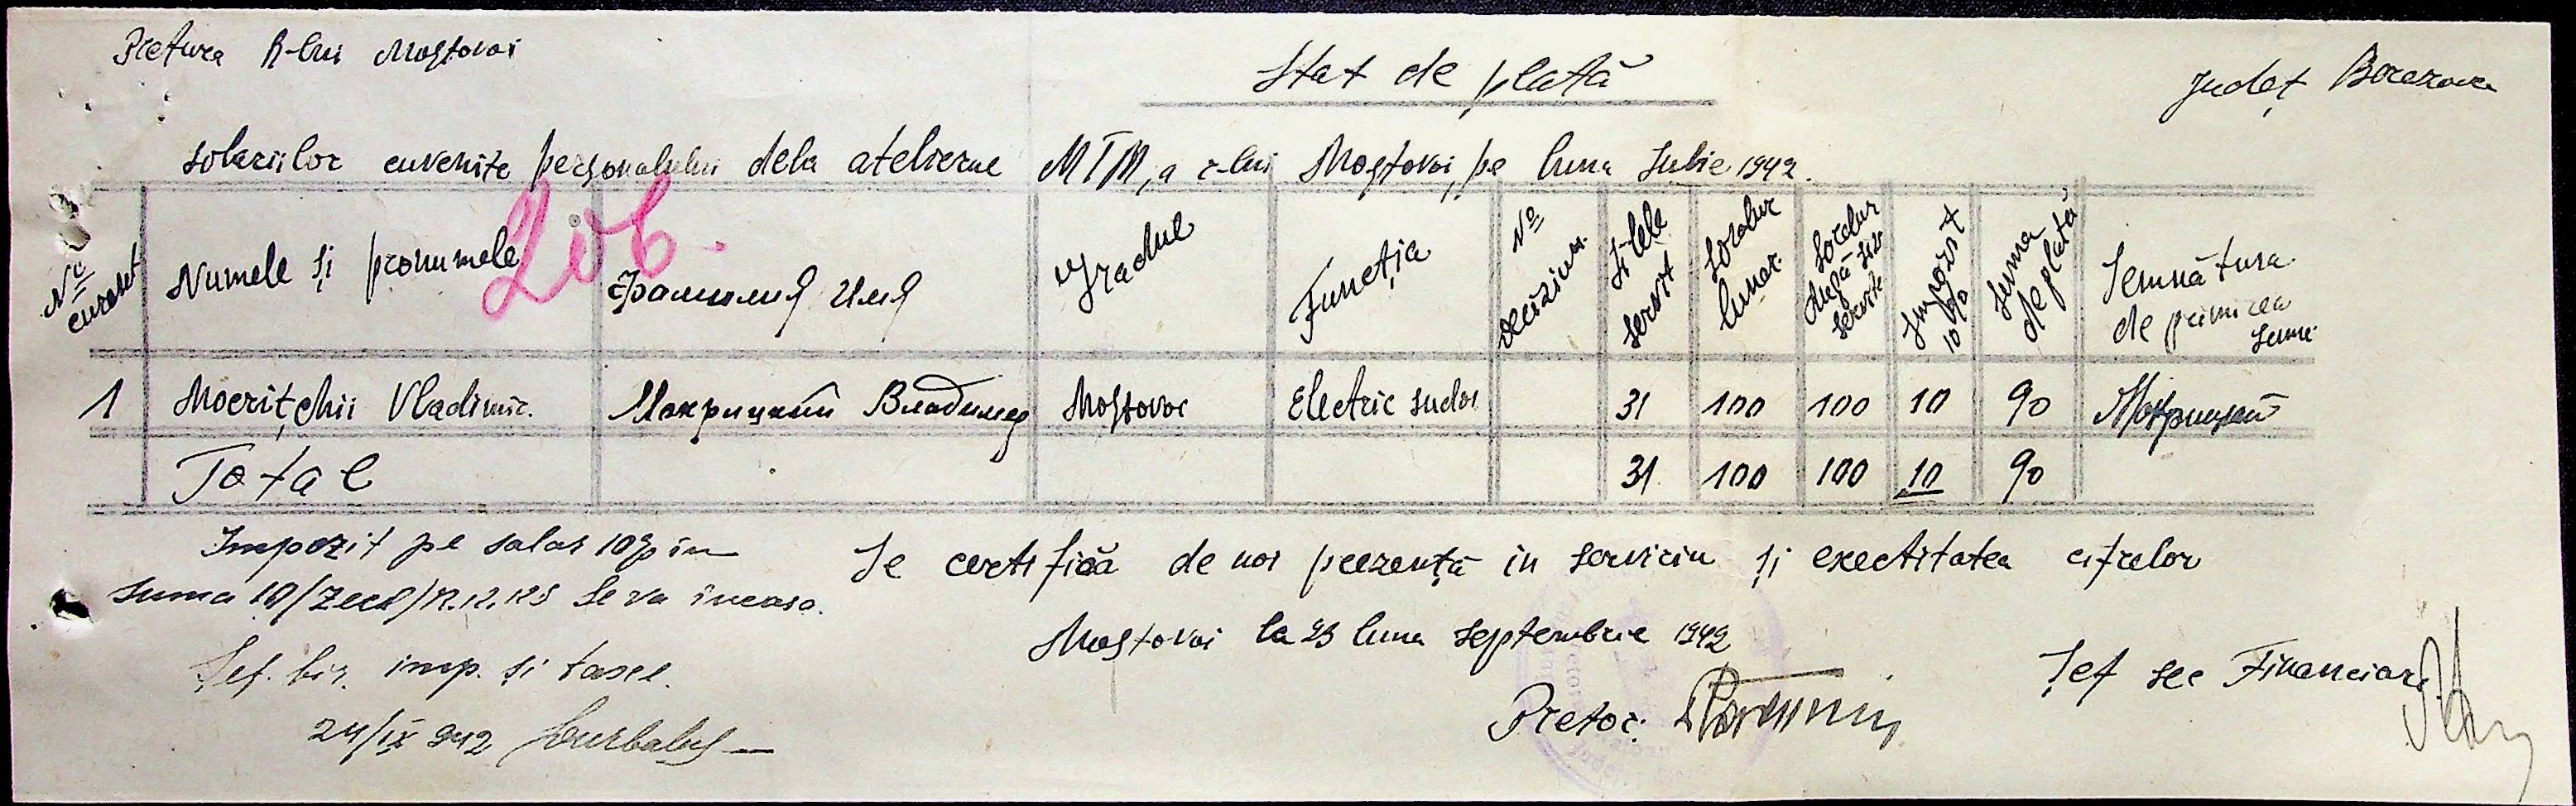 Pretura R-lui Mostovoi
Stat de plată
Judeţ Berezovca
salariilor cuvenite personalului dela atelierne MTM, a r-lui Mostovoi, pe luna Iulie 1942.
206.
No curent
Numele şi pronumele
Фамилия Имя
Gradul
Funcţia
No deciziun.
Zilele servit
Soldur lunar.
Soldur după zile servite
Impozit 10%
Suma de plată
Semnătura de primirea sumei
1 Mocriţchii Vladimir. Мокрицкий Владимир Mostovoi Electric sudor 31 100 100 10 90 Мокрицкий
Total 31 100 100 10 90
Impozit pe salar 10% în
suma 10/Zece/R.K.KS se va incasa.
Şef. bir. imp. şi taxel.
24/IX 942
Se certifică de noi prezenţă in serviciu şi exectitatea cifrelor
Mostovoi la 23 luna septembrie 1942
Pretor:
Şef sec Financiară